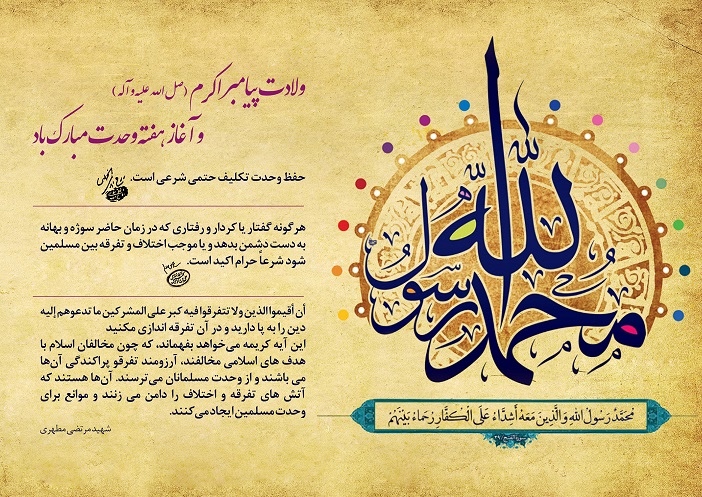 ولادت پیامبر اکرم (صل الله علیه و آله)
و آغاز هفته وحدت مبارک باد
حفظ وحدت تکلیف حتمی شرعی است.
هرگونه گفتار یا کردار و رفتاری که در زمان حاضر سوژه و بهانه
به دست دشمن بدهد و یا موجب اختلاف و تفرقه بین مسلمین
شود شرعاً حرام اکید است.
أن أقیمواالذین ولا تتفرقوا فیه کبر علی المشرکین ما تدعوهم إلیه
دین را به پا دارید و در آن تفرقه اندازی مکنید
این آیه کریمه می‌خواهد بفهماند، که چون مخالفان اسلام با
هدف های اسلامی مخالفند، آرزومند تفرقو پراکندگی آن‌ها
می باشند و از وحدت مسلمانان می‌ترسند. آن‌ها هستند که
آتش های تفرقه و اختلاف را دامن می زنند و موانع برای
وحدت مسلمین ایجاد می‌کنند.
شهید مرتضی مطهری
محمد رسول الله
مُحَمَّدٌ رَسُولُ اللهِ وَالَّذِينَ مَعَهُ أَشِدَّاءُ عَلَى الْكُفَّارِ رُحَمَاءُ بَيْنَهُمْ